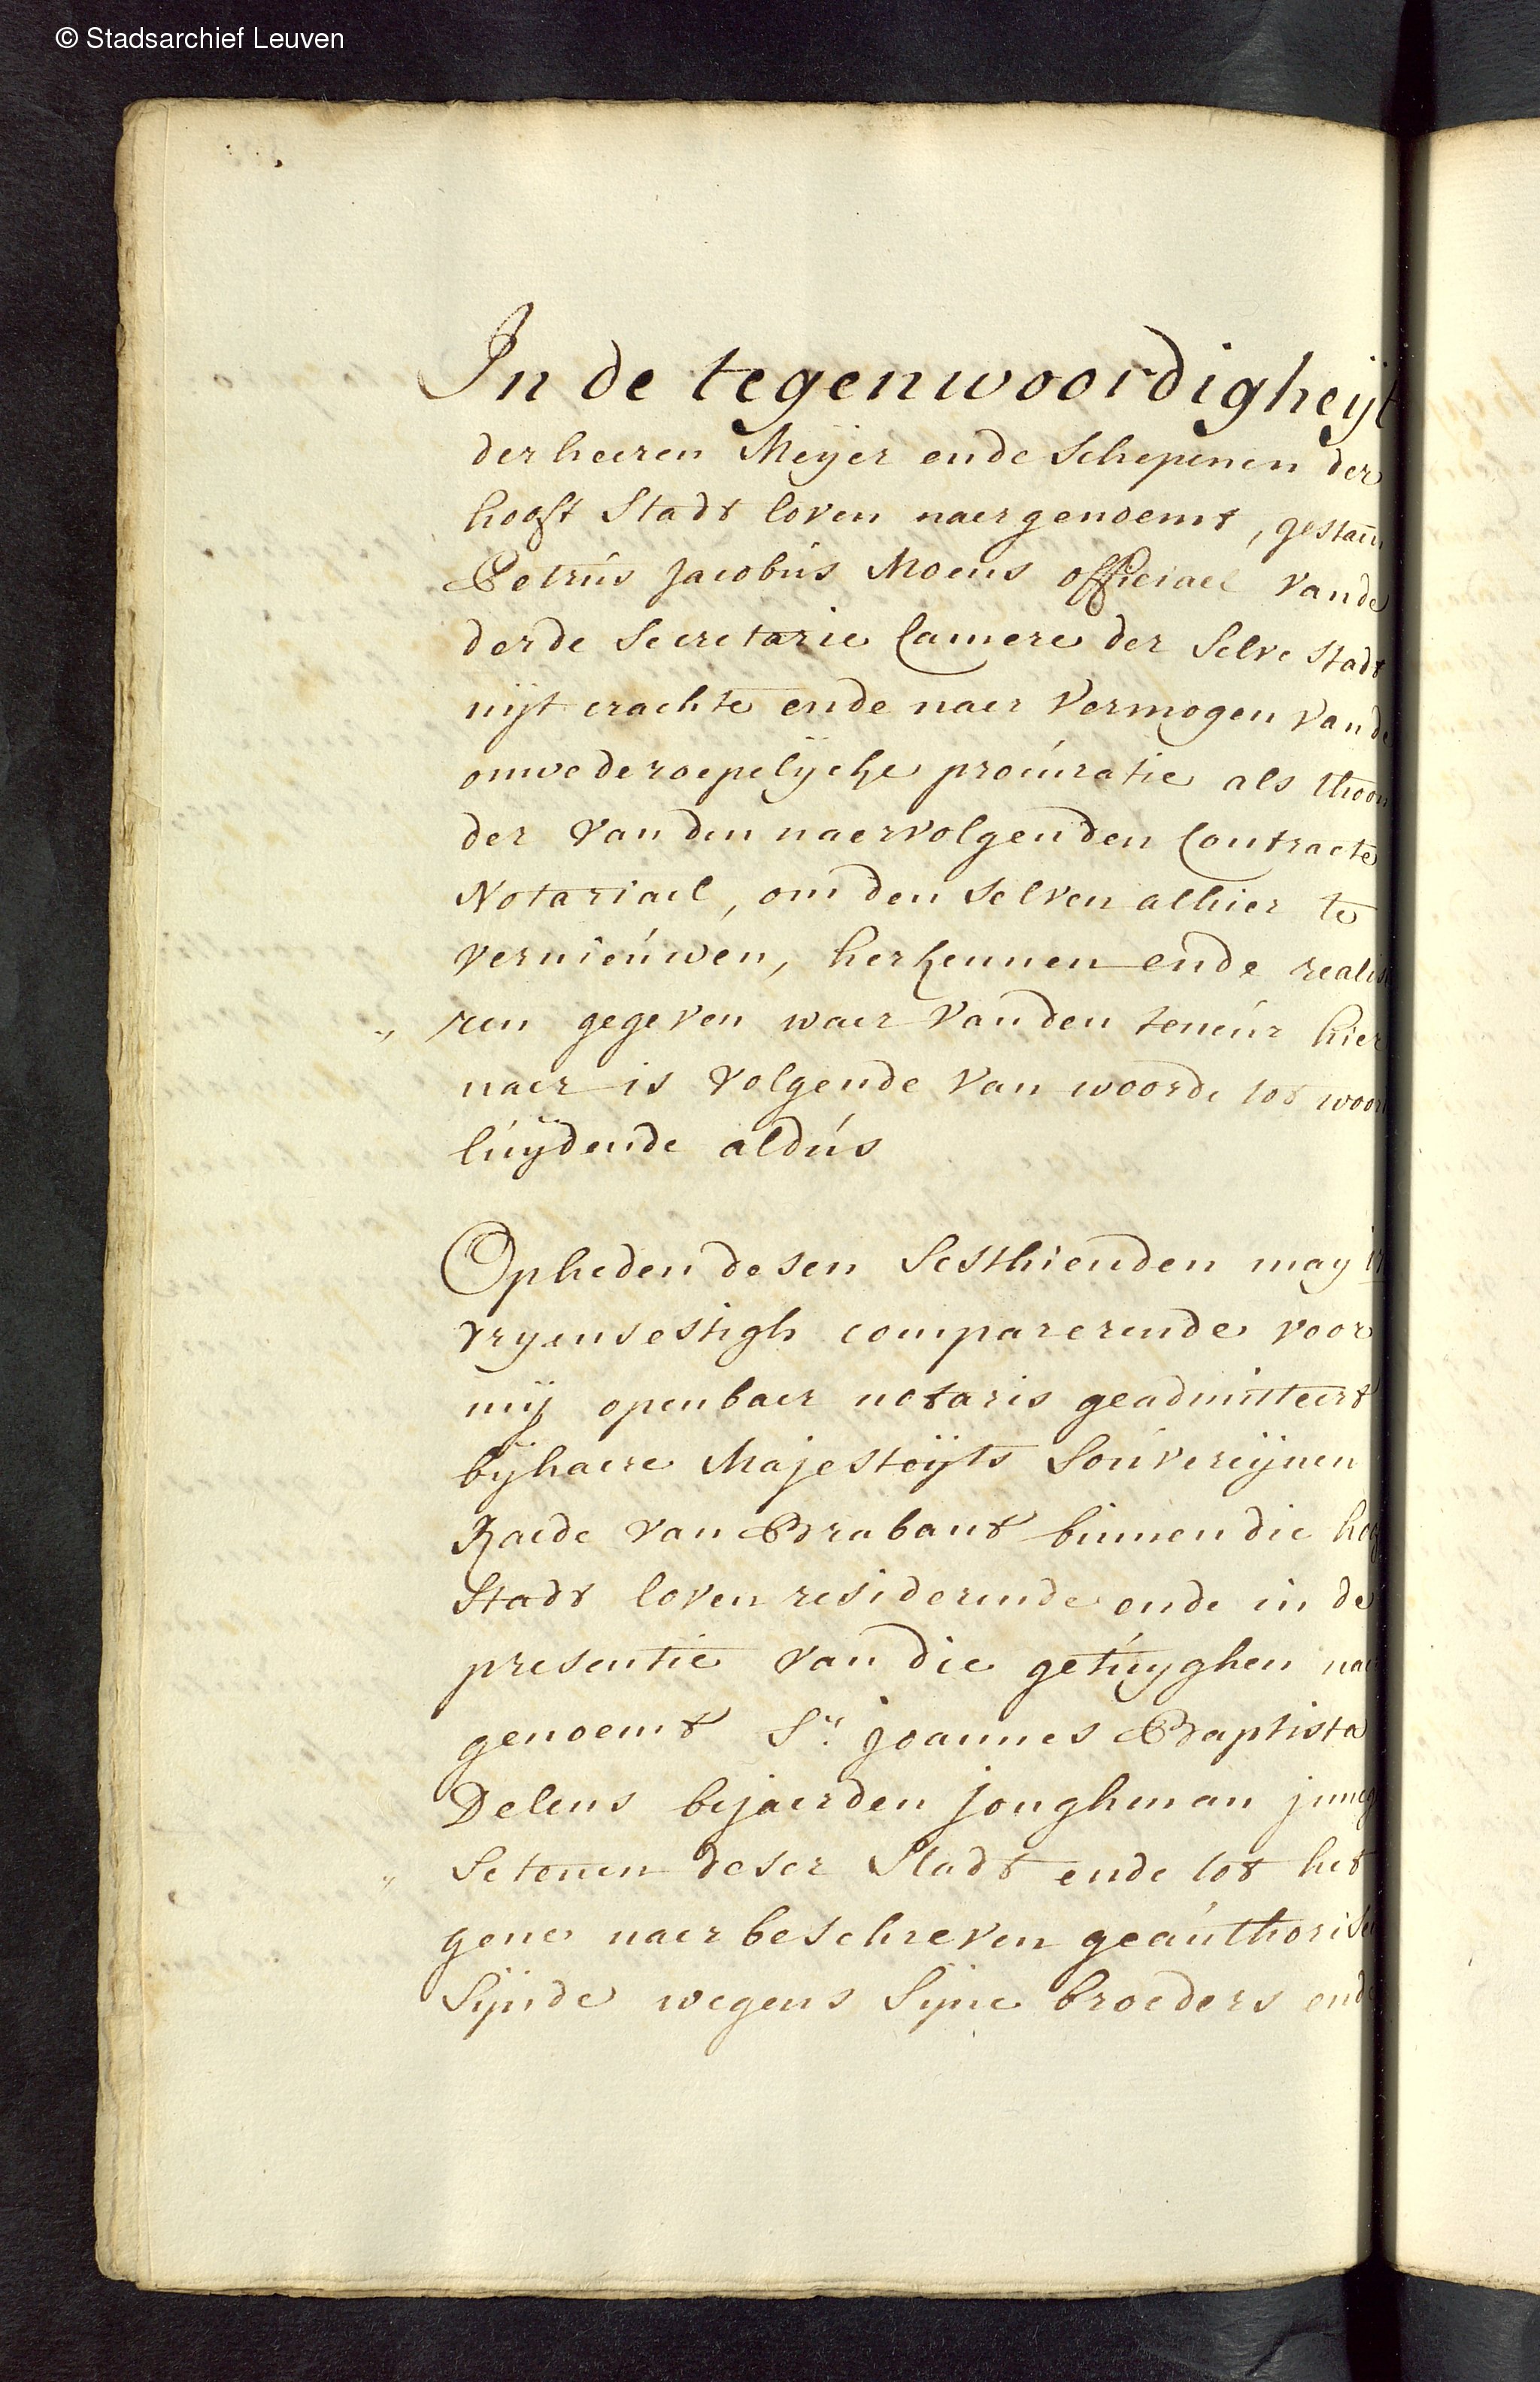 © Stadsarchief Leuven
In de tegenwoordigheijt
der heeren Meijer ende Schepenen der
hooft Stadt loven naergenoemt, gestaen
Petrus Jacobus Moens officiael vande
derde Secretarie Camere der Selve Stadt
uijt crachte ende naer vermogen vande
onwederoepelijcke procuratie als thoon
der van den naervolgenden Contracte
Notariael, om den Selven alhier te
vernieuwen, herkennen ende realise
ren gegeven waer van den teneur hier
naer is volgende van woorde tot woor
luijdende aldus
Opheden desen Sesthienden may 17
dryensestigh comparerende voor
mij openbaer notaris geadmitteert
bij haere Majesteijts Souvereijnen
Raede van Brabant binnen die
Stadt loven residerende ende in de
presentie van die getuyghen naer
genoemt Sr. joannes Baptista
Delens bejaerden jonghman
Setenen deser Stadt ende tot het
gene naerbeschreven geauthorise
Sijnde wegens Sijne broeders ende